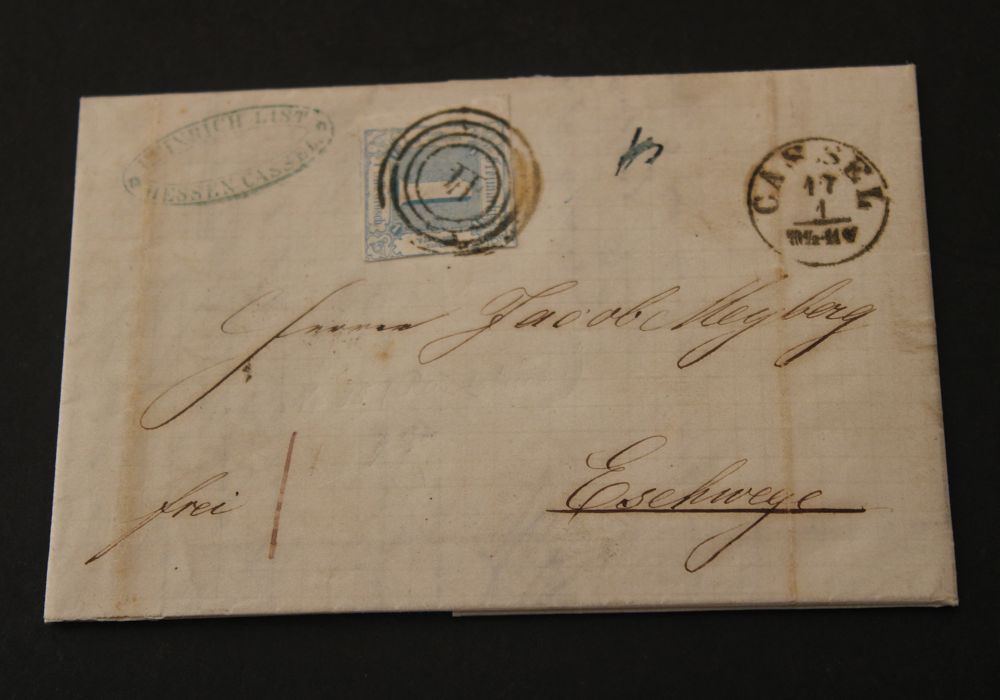 HEINRICH LIST
HESSEN CASSEL
1
CASSEL
17
1
Herrn Jacob Meyberg
Eschwege
frei